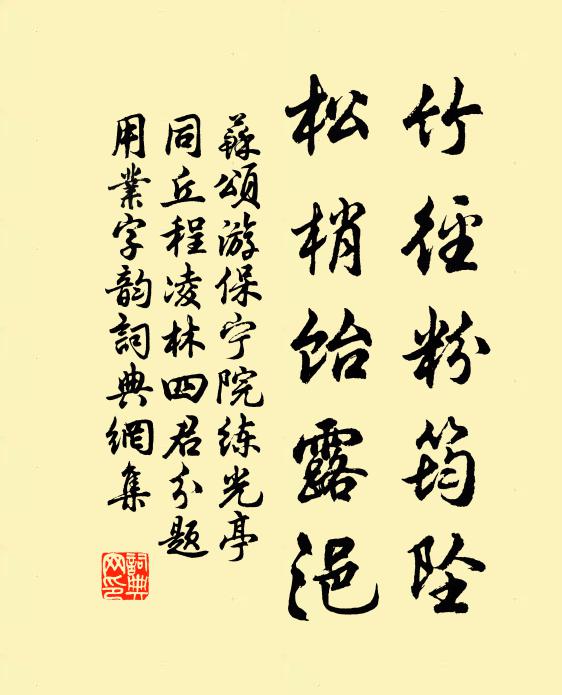 竹径粉筠坠
松梢饴露浥
蘇頌游保宁院练光亭
同丘程凌林四君分题
用業字韵詞典網集
詞典
网印